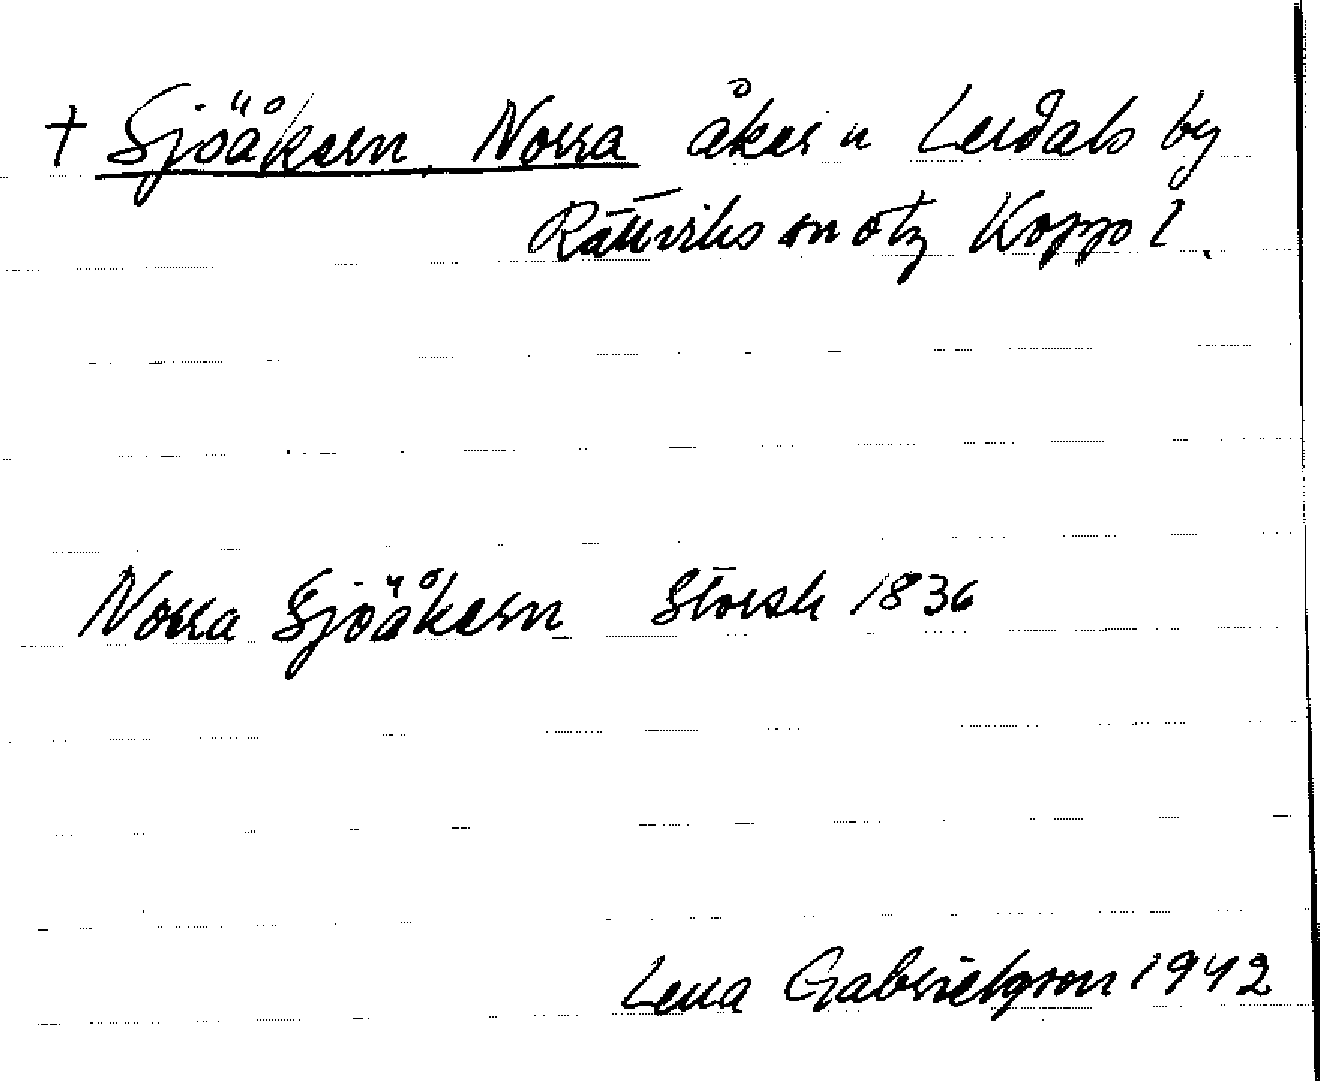 † Sjöåkern, Norra åker i Lerdals by
Rättviks sn o tg Kopp l.
Norra Sjöåkern Storsk 1836
Lena Gabrielsson 1942